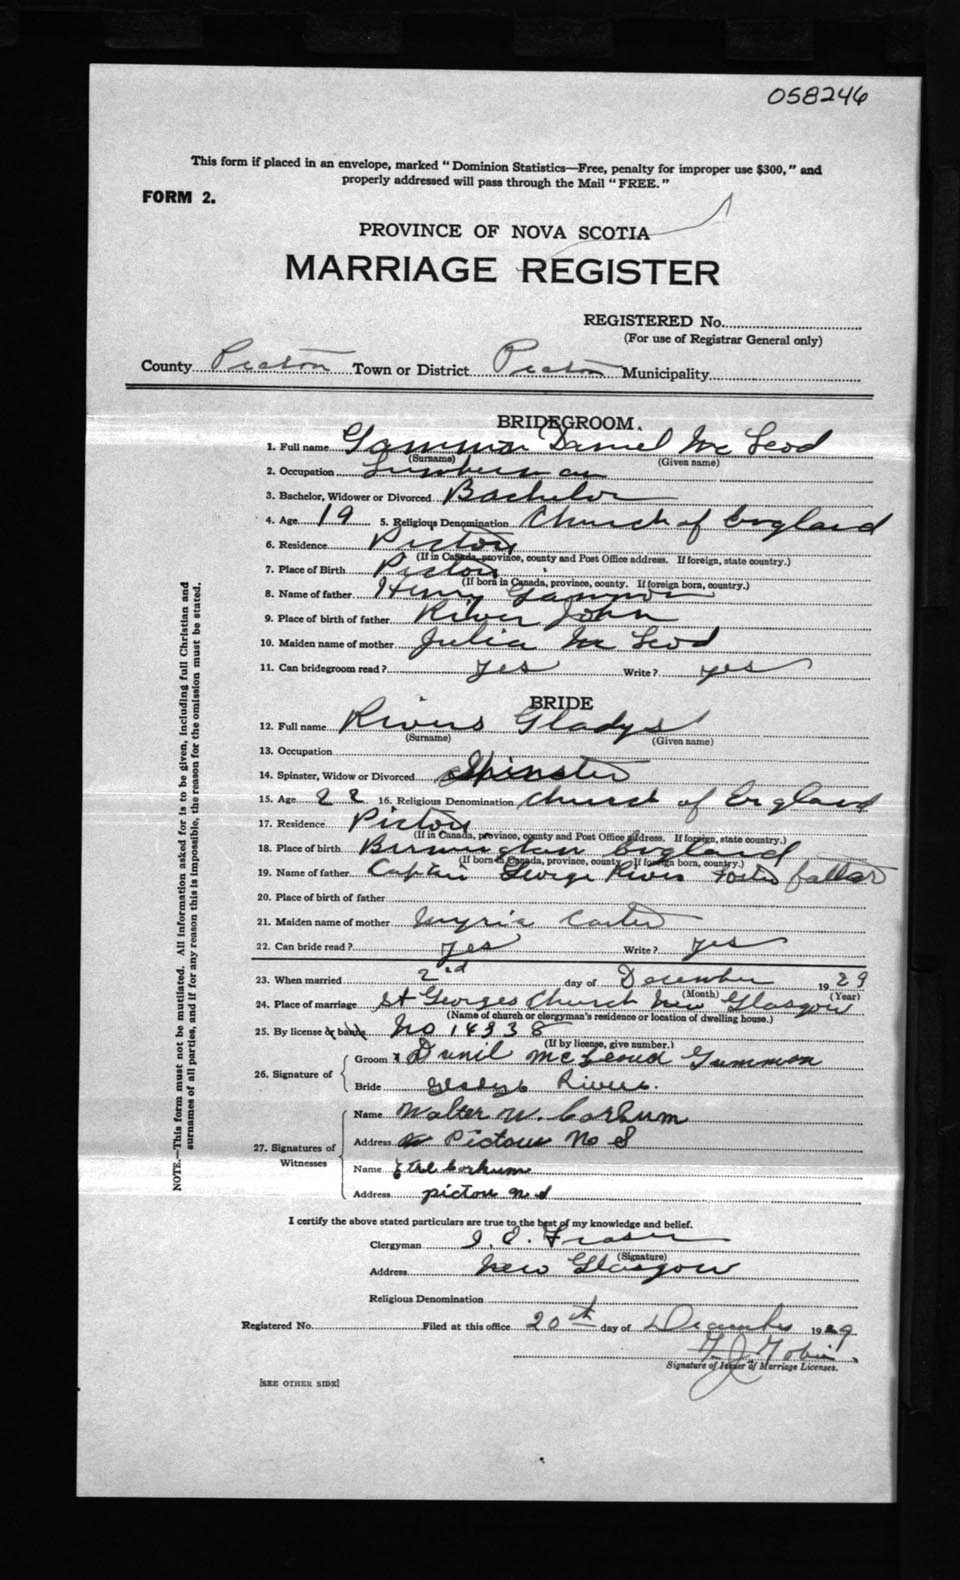 058246
This form if placed in an envelope, marked "Dominion Statistics—Free, penalty for improper use $300," and
properly addressed will pass through the Mail "FREE."
FORM 2.
PROVINCE OF NOVA SCOTIA
MARRIAGE REGISTER
REGISTERED No.
(For use of Registrar General only)
County Pictou Town or District Pictou Municipality
BRIDEGROOM.
1. Full name Gammon Daniel McLeod
(Surname) (Given name)
2. Occupation Lumberman
3. Bachelor, Widower or Divorced Bachelor
4. Age 19 5. Religious Denomination Church of England
6. Residence Pictou
(If in Canada, province, county and Post Office address. If foreign, state country.)
7. Place of Birth Pictou
(If born in Canada, province, county. If foreign born, country.)
8. Name of father Henry Gammon
9. Place of birth of father River John
10. Maiden name of mother Julia McLeod
11. Can bridegroom read? yes Write? yes
BRIDE
12. Full name Rivers Gladys
(Surname) (Given name)
13. Occupation
14. Spinster, Widow or Divorced Spinster
15. Age 22 16. Religious Denomination Church of England
17. Residence Pictou
(If in Canada, province, county and Post Office address. If foreign, state country.)
18. Place of birth Birmingham England
(If born in Canada, province, county. If foreign born, country.)
19. Name of father Captain George Rivers Foster father
20. Place of birth of father
21. Maiden name of mother Carter
22. Can bride read? yes Write? yes
23. When married 2nd day of December 1929
(Month) (Year)
24. Place of marriage St Georges Church New Glasgow
(Name of church or clergyman's residence or location of dwelling house.)
25. By license or banns No 14338
(If by license, give number.)
26. Signature of
Groom x Danil McLeoud Gammon
Bride Gladys Rivers.
27. Signatures of Witnesses
Name Walter W. Corkum
Address Pictou N S
Name Ethel Corkum
Address pictou n.s
I certify the above stated particulars are true to the best of my knowledge and belief.
Clergyman Fraser
(Signature)
Address New Glasgow
Religious Denomination
Registered No. Filed at this office 20th day of December 1929
Tobin
Signature of Issuer of Marriage Licenses.
[SEE OTHER SIDE]
NOTE.—This form must not be mutilated. All information asked for is to be given, including full Christian and
surnames of all parties, and if for any reason this is impossible, the reason for the omission must be stated.